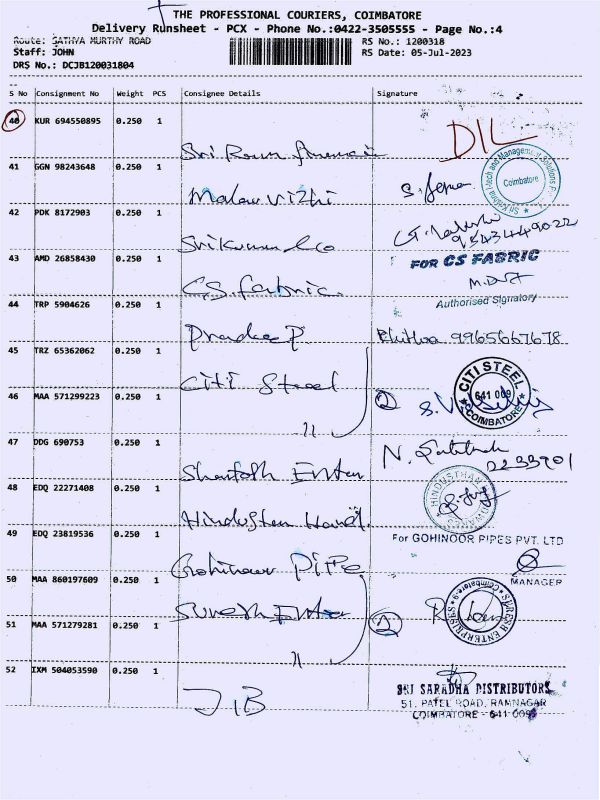 THE PROFESSIONAL COURIERS, COIMBATORE
Delivery Runsheet - PCX - Phone No.:0422-3505555 - Page No.:4
Route: SATHYA MURTHY ROAD RS No.: 1200318
Staff: JOHN RS Date: 05-Jul-2023
DRS No.: DCJB120031804
S No Consignment No Weight PCS Consignee Details Signature
40 KUR 694550895 0.250 1
Sri DIL
41 GGN 98243648 0.250 1
Malar Vizhi
Sri Krishna I-tech and Management Solutions P
Coimbatore
42 PDK 8172903 0.250 1
Srikumar & Co 9543449022
43 AMD 26858430 0.250 1
FOR CS FABRIC
CS. fabric.
Authorised Signatory
44 TRP 5904626 0.250 1
Pradeep. 9965667678
45 TRZ 65362062 0.250 1
Citi Steel
CITI STEEL
641 009
COIMBATORE
46 MAA 571299223 0.250 1 2
11
47 DDG 690753 0.250 1 N.
2233901
Santosh Enter
48 EDQ 22271408 0.250 1
HINDUSTHAN
Hindusthan Hard.
49 EDQ 23819536 0.250 1 For GOHINOOR PIPES PVT. LTD
Gohinoor Pipe
50 MAA 860197609 0.250 1 MANAGER
Suresh Enter
SURESH ENTERPRISES
Coimbatore-9
51 MAA 571279281 0.250 1 2
11
52 IXM 504053590 0.250 1
JIB
SRI SARADHA DISTRIBUTORS
51, PATEL ROAD, RAMNAGAR
COIMBATORE - 641 009